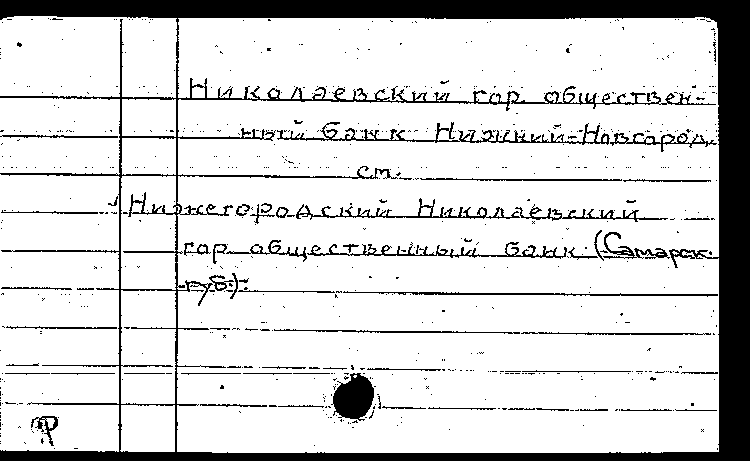 Николаевский гор. обществен-
ный банк Нижний-Новгород.
см.
Нижегородский Николаевский
гор. общественный банк (Самарск.
губ.).